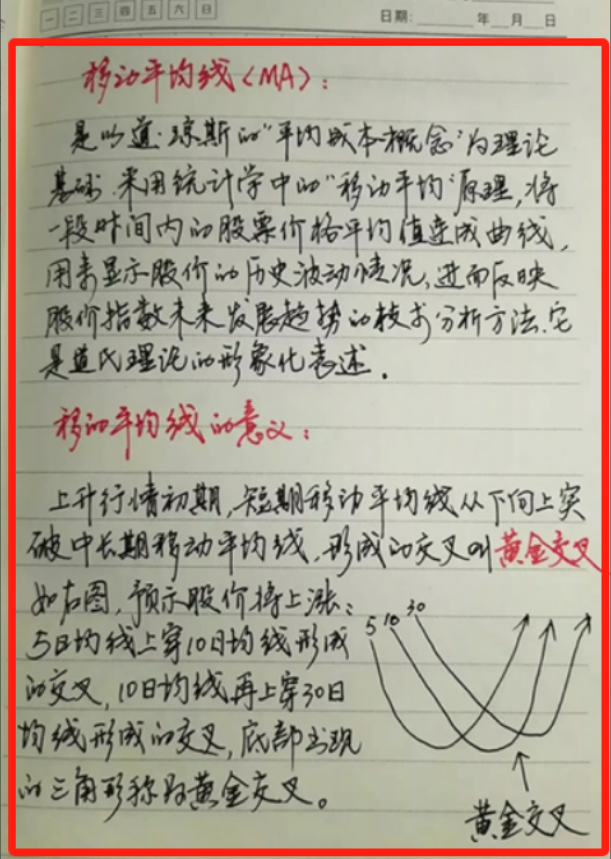 一 二 三 四 五 六 日
日期: 年 月 日
移动平均线(MA):
是以道·琼斯的“平均成本概念”为理论
基础,采用统计学中的“移动平均”原理,将
一段时间内的股票价格平均值连成曲线,
用来显示股价的历史波动情况,进而反映
股价指数未来发展趋势的技术分析方法.它
是道氏理论的形象化表述.
移动平均线的意义:
上升行情初期,短期移动平均线从下向上突
破中长期移动平均线,形成的交叉叫黄金交叉
如右图,预示股价将上涨:
5 10 30
5日均线上穿10日均线形成
的交叉,10日均线再上穿30日
均线形成的交叉,底部出现
的三角形称为黄金交叉。
黄金交叉